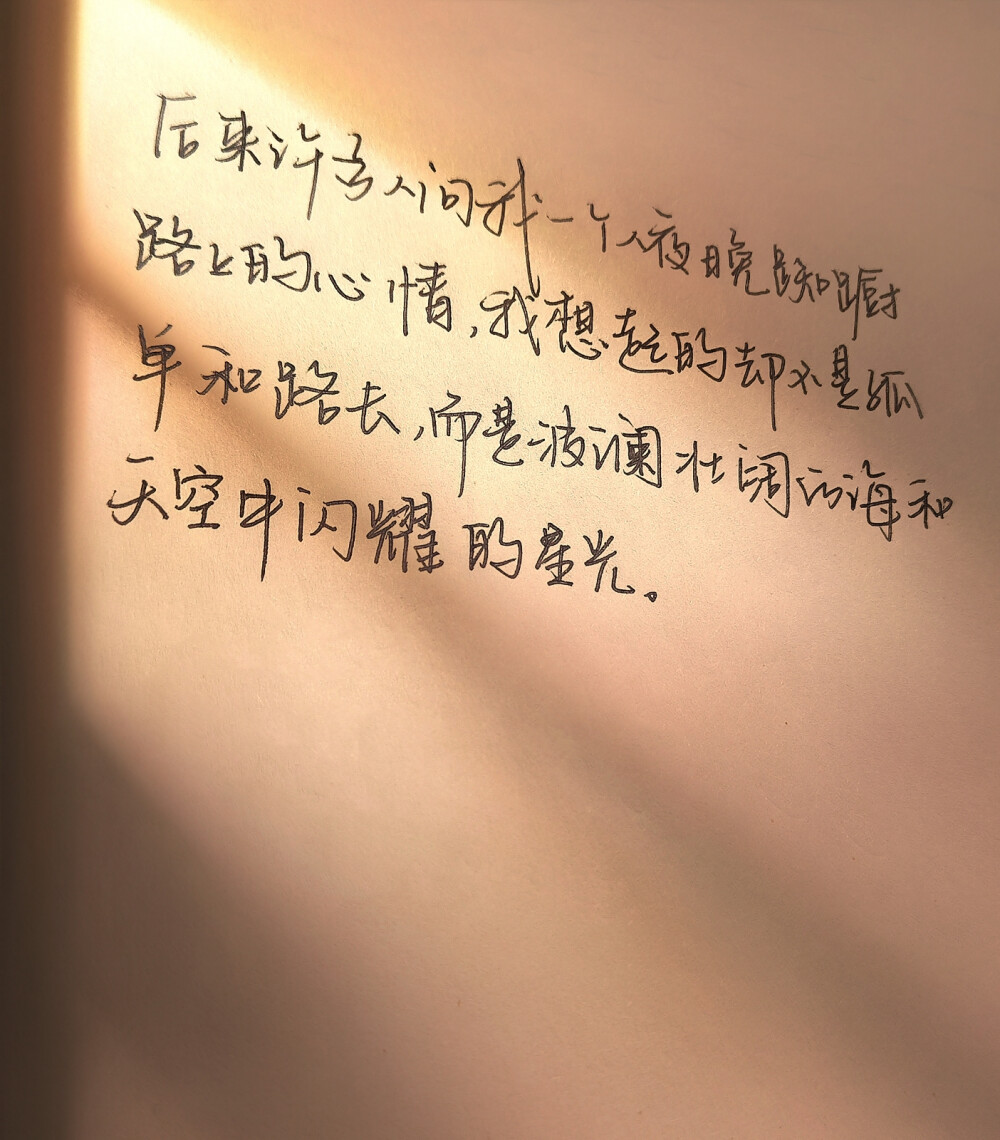 后来许多人问我一个人夜晚踟蹰
路上的心情,我想起的却不是孤
单和路长,而是波澜壮阔的海和
天空中闪耀的星光。